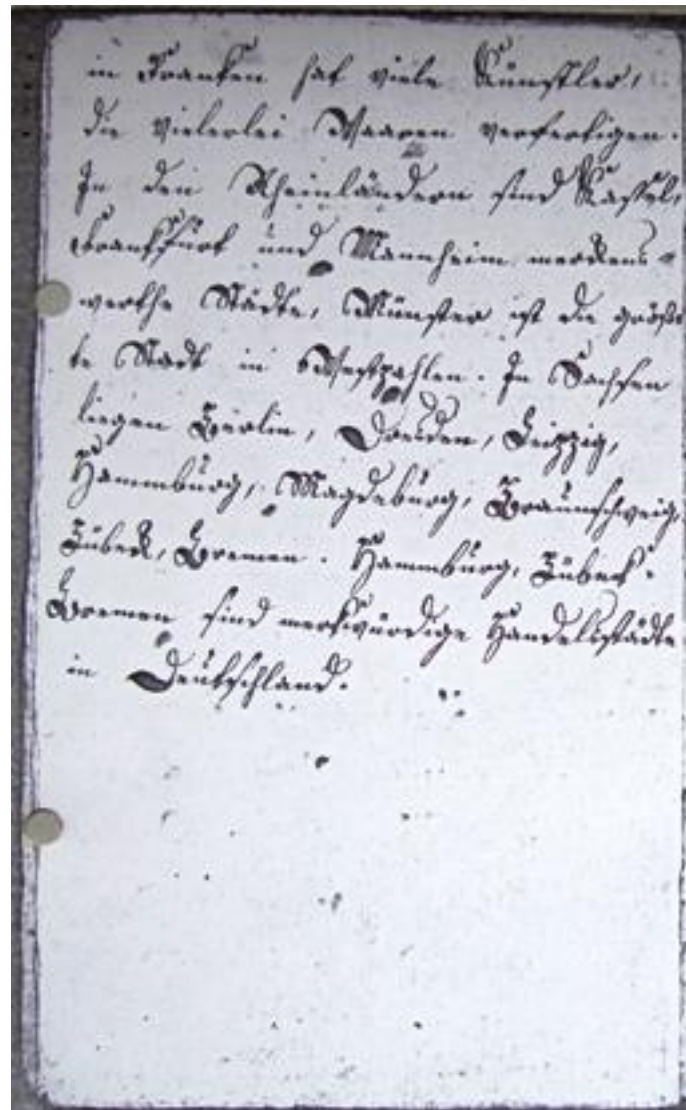 in Franken hat viele Künstler,
die vielerlei Waaren verfertigen.
In den Rheinländern sind Kassel,
Frankfurt und Mannheim merkens=
werthe Städte, Münster ist die größ
te Stadt in Westpahlen. In Sachsen
liegen Berlin, Dresden, Leipzig,
Hammburg, Magdeburg, Braunschweig,
Lübeck, Bremen. Hammburg, Lübeck.
Bremen sind merkwürdige Handelsstädte
in Deutschland.